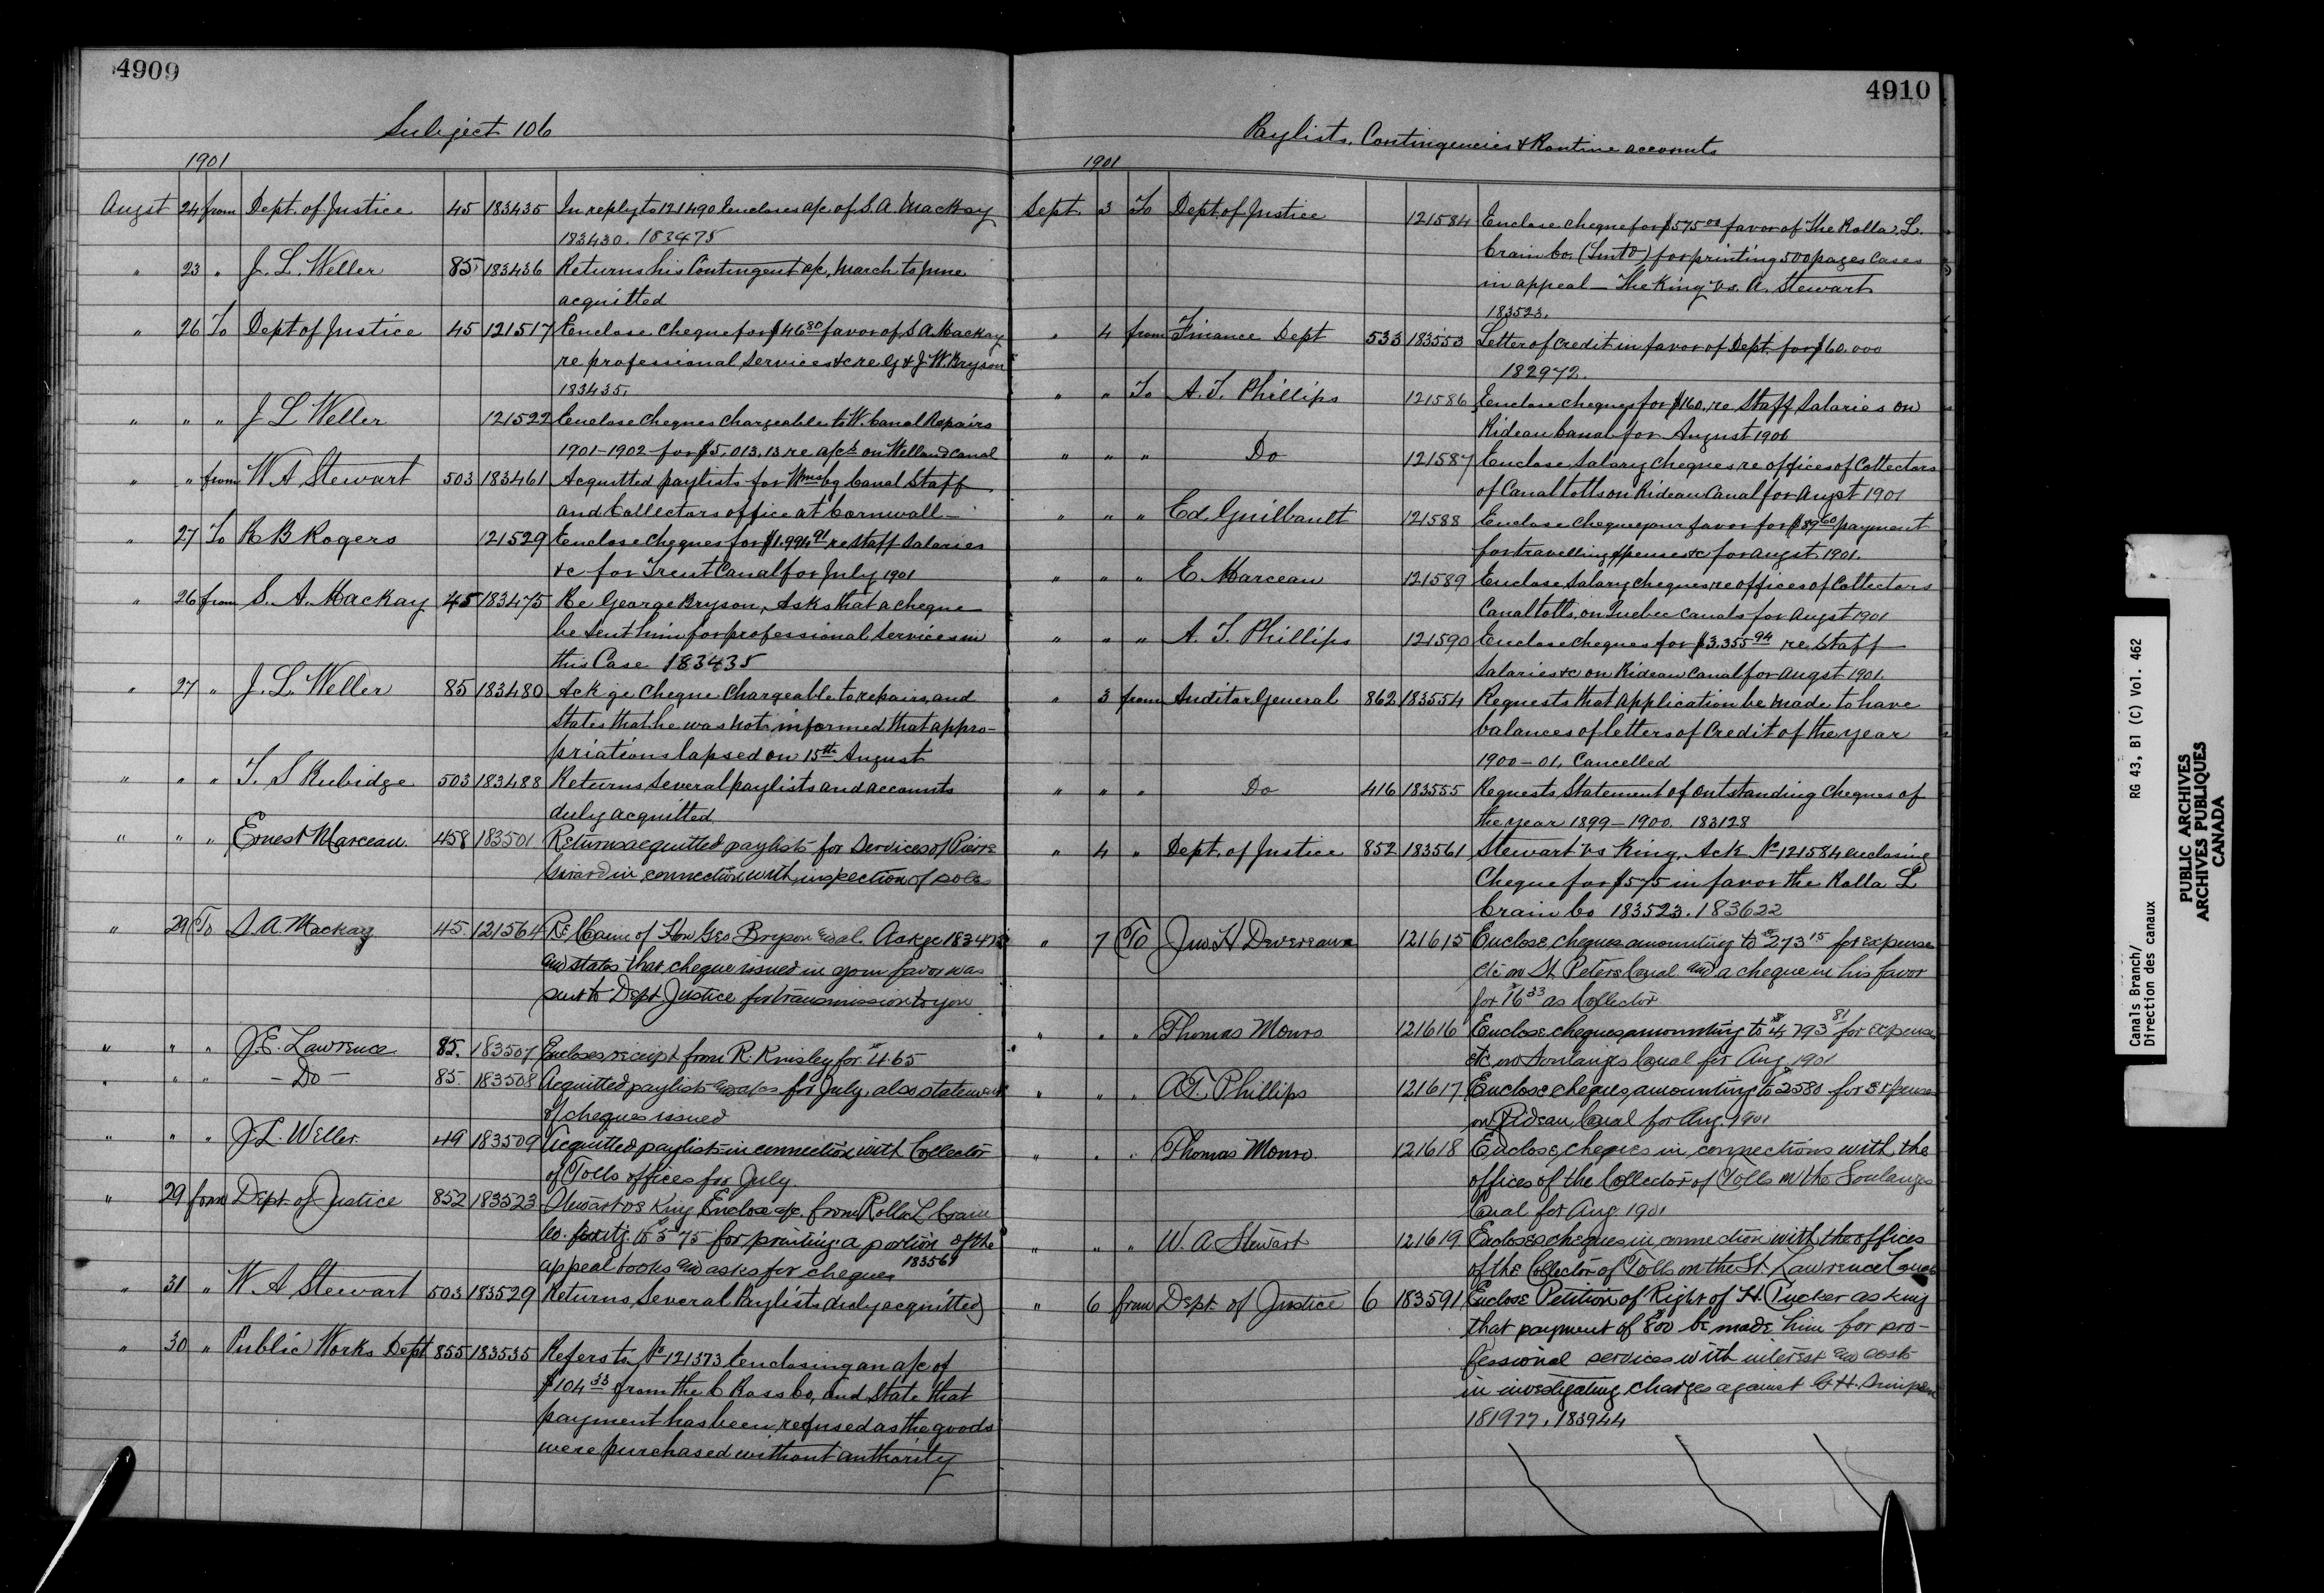 4909
Subject 106
1901
Augst 24 from Dept. of Justice 45 183435 In reply to 121490 Encloses a/c of S. A. Mackay
183430. 183475
" 23 " J. L. Weller 85 183436 Returns his Contingent a/c, March to June
acquitted
" 26 To Dept of Justice 45 121517 Enclose cheque for $46 80 favor of S A Mackay
re professional services &c re G & J. W. Bryson
183435.
" " " J L Weller 121522 Enclose cheques chargeable to W. Canal Repairs
1901-1902 for $5,013.13 re a/cs on Welland Canal
" " from W A Stewart 503 183461 Acquitted paylists for Wmsbg Canal Staff
and Collectors office at Cornwall -
" 27 To R B Rogers 121529 Enclose cheques for $1.994 91 re staff Salaries
&c for Trent Canal for July 1901
" 26 from S. A. Mackay 45 183475 Re George Bryson, Asks that a cheque
be sent him for professional services in
this Case 183435
" 27 " J. L. Weller 85 183480 Ack ge cheque chargeable to repairs, and
States that he was not informed that appro-
priations lapsed on 15th August
" " " T. S Rubidge 503 183488 Returns several paylists and accounts
duly acquitted
" " " Ernest Marceau. 458 183501 Returns acquitted paylists for Services of Pierre
Girard in connection with inspection of
" 29 To S. A. Mackay 45. 121564 Re Claim of Hon Geo Bryson et al. Ackge 183475
and states that cheque issued in your favor was
sent to Dept Justice for transmission to you
" " " J. E. Lawrence 85. 183507 Encloses receipt from R. Knisley for $4.65
" " " - Do - 85. 183508 Acquitted paylists and a/cs for July, also statement
of cheques issued
" " " J. L. Weller 49 183509 Acquitted paylists in connection with Collector
of Tolls offices for July
" 29 from Dept. of Justice 852 183523 Stewart vs King Enclose a/c. from Rolla L Crain
Co. amtg. to $575 for printing a portion of the
appeal books and asks for cheques 183561
" 31 " W. A Stewart 503 183529 Returns Several Paylists duly acquitted
" 30 " Public Works Dept 855 183535 Refers to No 121373 enclosing an a/c of
$104 33 from the C Ross Co, and State that
payment has been refused as the goods
were purchased without authority
4910
Paylists, Contingencies & Routine accounts
1901
Sept. 3 To Dept. of Justice 121584 Enclose cheque for $575 00 favor of The Rolla. L.
Crain Co. (Limtd) for printing 500 pages Cases
in appeal - The King vs. A. Stewart
183523.
" 4 from Finance Dept 533 183553 Letter of Credit in favor of Dept. for $60.000
182972.
" " To A. T. Phillips 121586 Enclose cheques for $160. re Staff Salaries on
Rideau Canal for August 1901
" " " Do 121587 Enclose Salary cheques re offices of Collectors
of Canal tolls on Rideau Canal for Augst 1901
" " " Ed. Guilbault 121588 Enclose cheque your favor for $89 60 payment
for travelling expenses &c for Augst 1901.
" " " E. Marceau 121589 Enclose Salary cheques, re offices of Collectors
Canal tolls, on Quebec Canals for Augst 1901
" " " A. T. Phillips 121590 Enclose cheques for $3.355 94 re Staff
Salaries &c on Rideau Canal for Augst 1901.
" 3 from Auditor General 862 183554 Requests that application be made to have
balances of letters of Credit of the year
1900-01, Cancelled
" " " Do 416 183555 Requests Statement of outstanding cheques of
the year 1899-1900. 183128
" 4 " Dept. of Justice 852 183561 Stewart vs King. Ack No 121584 enclosing
Cheque for $575 in favor the Rolla L
Crain Co 183523. 183622
" 7 To Jno. H Devereaux 121615 Enclose, cheques amounting to $273 15 for expenses
etc on St. Peters Canal and a cheque in his favor
for $16 33 as Collector
" " " Thomas Monro 121616 Enclose cheques amounting to $4,793 81 for expenses
etc on Soulanges Canal for Aug. 1901
" " " A. T. Phillips 121617 Enclose cheques amounting to $2580 for Expenses
on Rideau Canal for Aug. 1901
" " " Thomas Monro. 121618 Enclose, cheques in connections with the
offices of the Collector of Tolls on the Soulanges
Canal for Aug. 1901
" " " W. A. Stewart 121619 Encloses cheques in connection with the offices
of the Collector of Tolls on the St. Lawrence Canals
" 6 from Dept. of Justice 6 183591 Enclose Petition of Right of H. Tucker asking
that payment of $800 be made him for pro-
fessional services with interest and costs
in investigating charges against
181977, 183944
Canals Branch/
Direction des canaux
RG 43, B1 (C) Vol. 462
PUBLIC ARCHIVES
ARCHIVES PUBLIQUES
CANADA